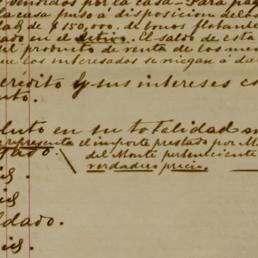 vendidos por la casa - Para pag
la casa puso a disposicion del
de $150.000 de bonos
ado en el Activo. El saldo de esta
el producto de venta de los
que los interesados se niegan a da
crédito y sus intereses co
nto.
oluto en su totalidad
representa el importe prestado por M
gado.
del Monte perteneciente
verdadero precio.
ldado.